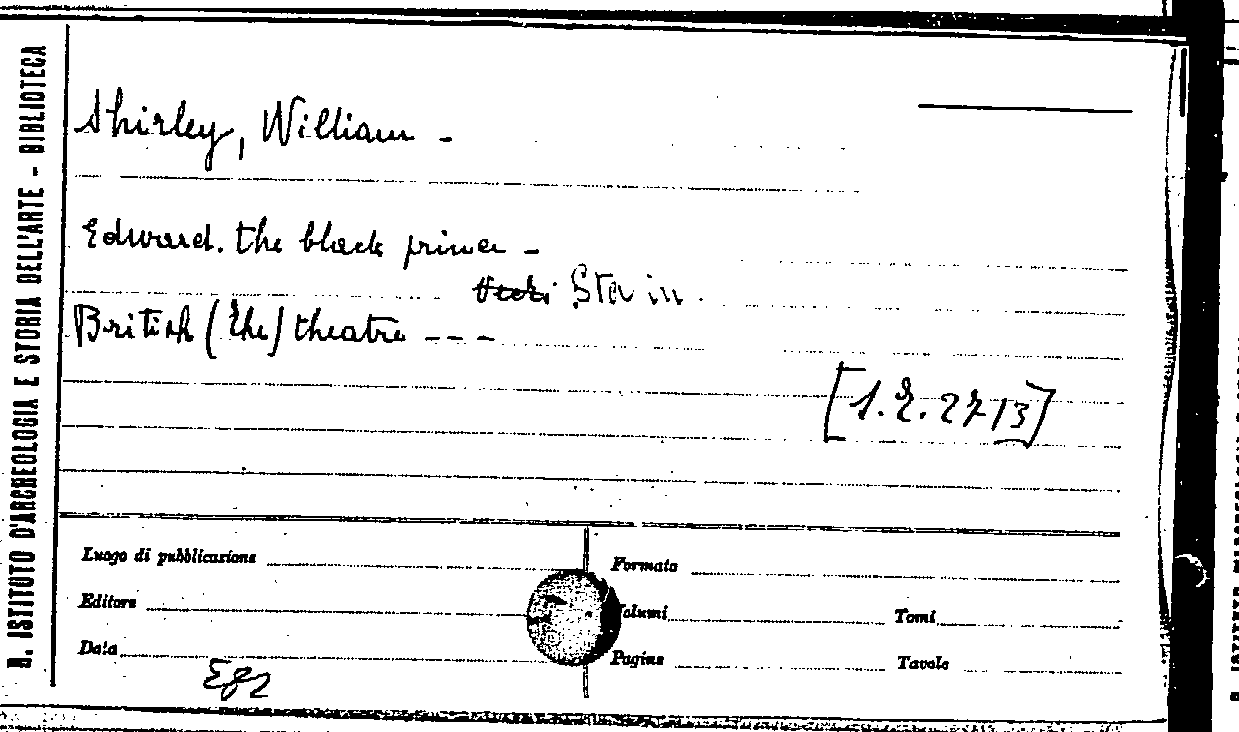 R. ISTITUTO D'ARCHEOLOGIA E STORIA DELL'ARTE - BIBLIOTECA
Shirley, William -
Edward. the black prince -
Sta in.
British (the) theatre - - -
[1.2.27 13]
Luogo di pubblicazione
Formato
Editore
Volumi
Tomi
Data
Pagine
Tavole